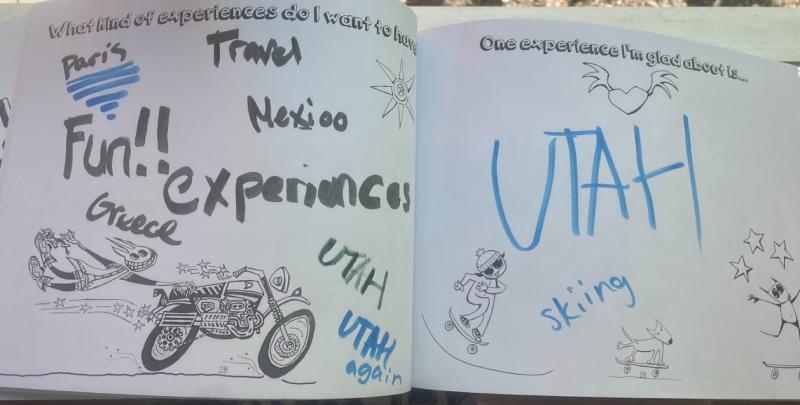 What kind of experiences do I want to have
Paris
Travel
Mexioo
Fun!!
experiences
Greece
UTAH
UTAH
again
28
One experience I'm glad about is...
UTAH
skiing
29